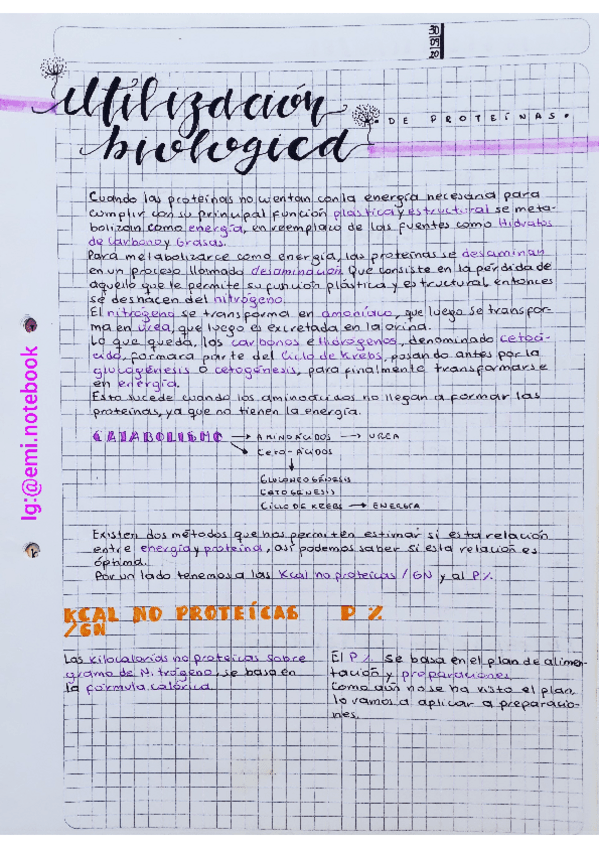 Utilización
biologica
DE PROTEÍNAS.
Cuando las proteínas no cuentan con la energía necesaria para
cumplir con su principal función plástica y estructural se meta-
bolizan como energía, en reemplazo de las fuentes como Hidratos
de carbono y Grasas.
Para metabolizarce como energía, las proteínas se desaminan
en un proceso llamado desaminación. Que consiste en la pérdida de
aquello que le permite su función plástica y estructural entonces
se deshacen del nitrógeno.
El nitrógeno se transforma en amoníaco, que luego se transfor-
ma en urea, que luego es excretada en la orina.
Lo que queda, los carbonos e Hidrógenos, denominado cetoá-
cido, formara parte del Ciclo de Krebs, pasando antes por la
glucogénesis o cetogénesis, para finalmente transformarse
en energía.
Esto sucede cuando los aminoácidos no llegan a formar las
proteínas, ya que no tienen la energía.
CATABOLISMO → AMINOÁCIDOS → UREA
CETO-ÁCIDOS
GLUCONEOGÉNESIS
CETOGENESIS
CICLO DE KREBS → ENERGÍA
Existen dos métodos que nos permiten estimar si esta relación
entre energía y proteína, así podemos saber si esta relación es
óptima.
Por un lado tenemos a las Kcal no proteicas / GN y al P%.
KCAL NO PROTEÍCAS
/GN
P %
Las kilocalorías no proteicas sobre
gramo de Nitrógeno, se basa en
la formula calórica.
El P % se basa en el plan de alimen-
tación y preparaciones.
Como aún no se ha visto el plan,
lo vamos a aplicar a preparacio-
nes.
Ig:@emi.notebook